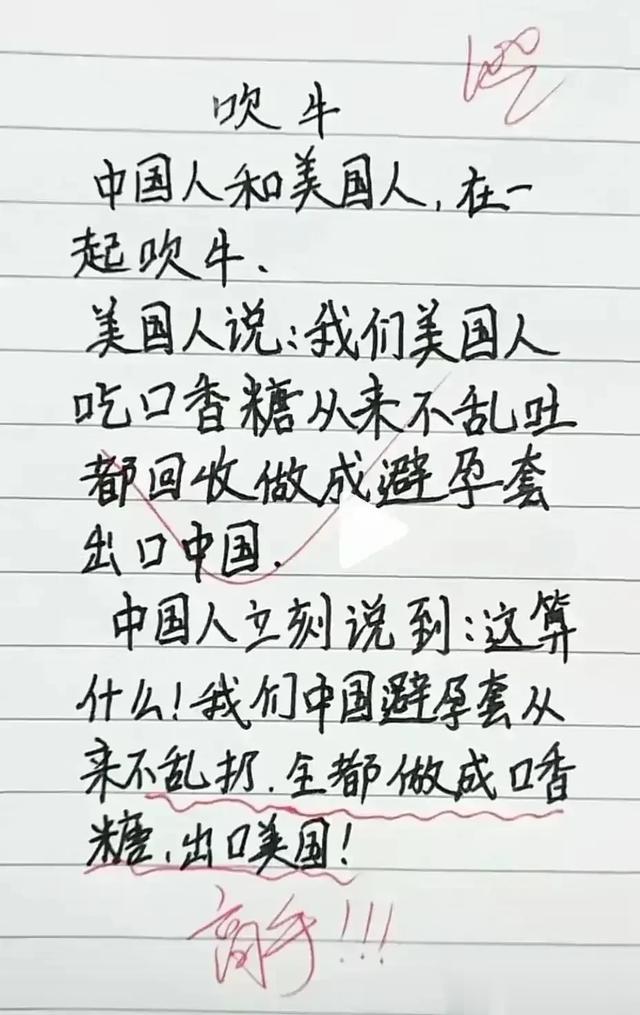 100
吹牛
中国人和美国人,在一
起吹牛.
美国人说:我们美国人
吃口香糖从来不乱吐
都回收做成避孕套
出口中国.
中国人立刻说到:这算
什么!我们中国避孕套从
来不乱扔.全都做成口香
糖,出口美国!
高手!!!